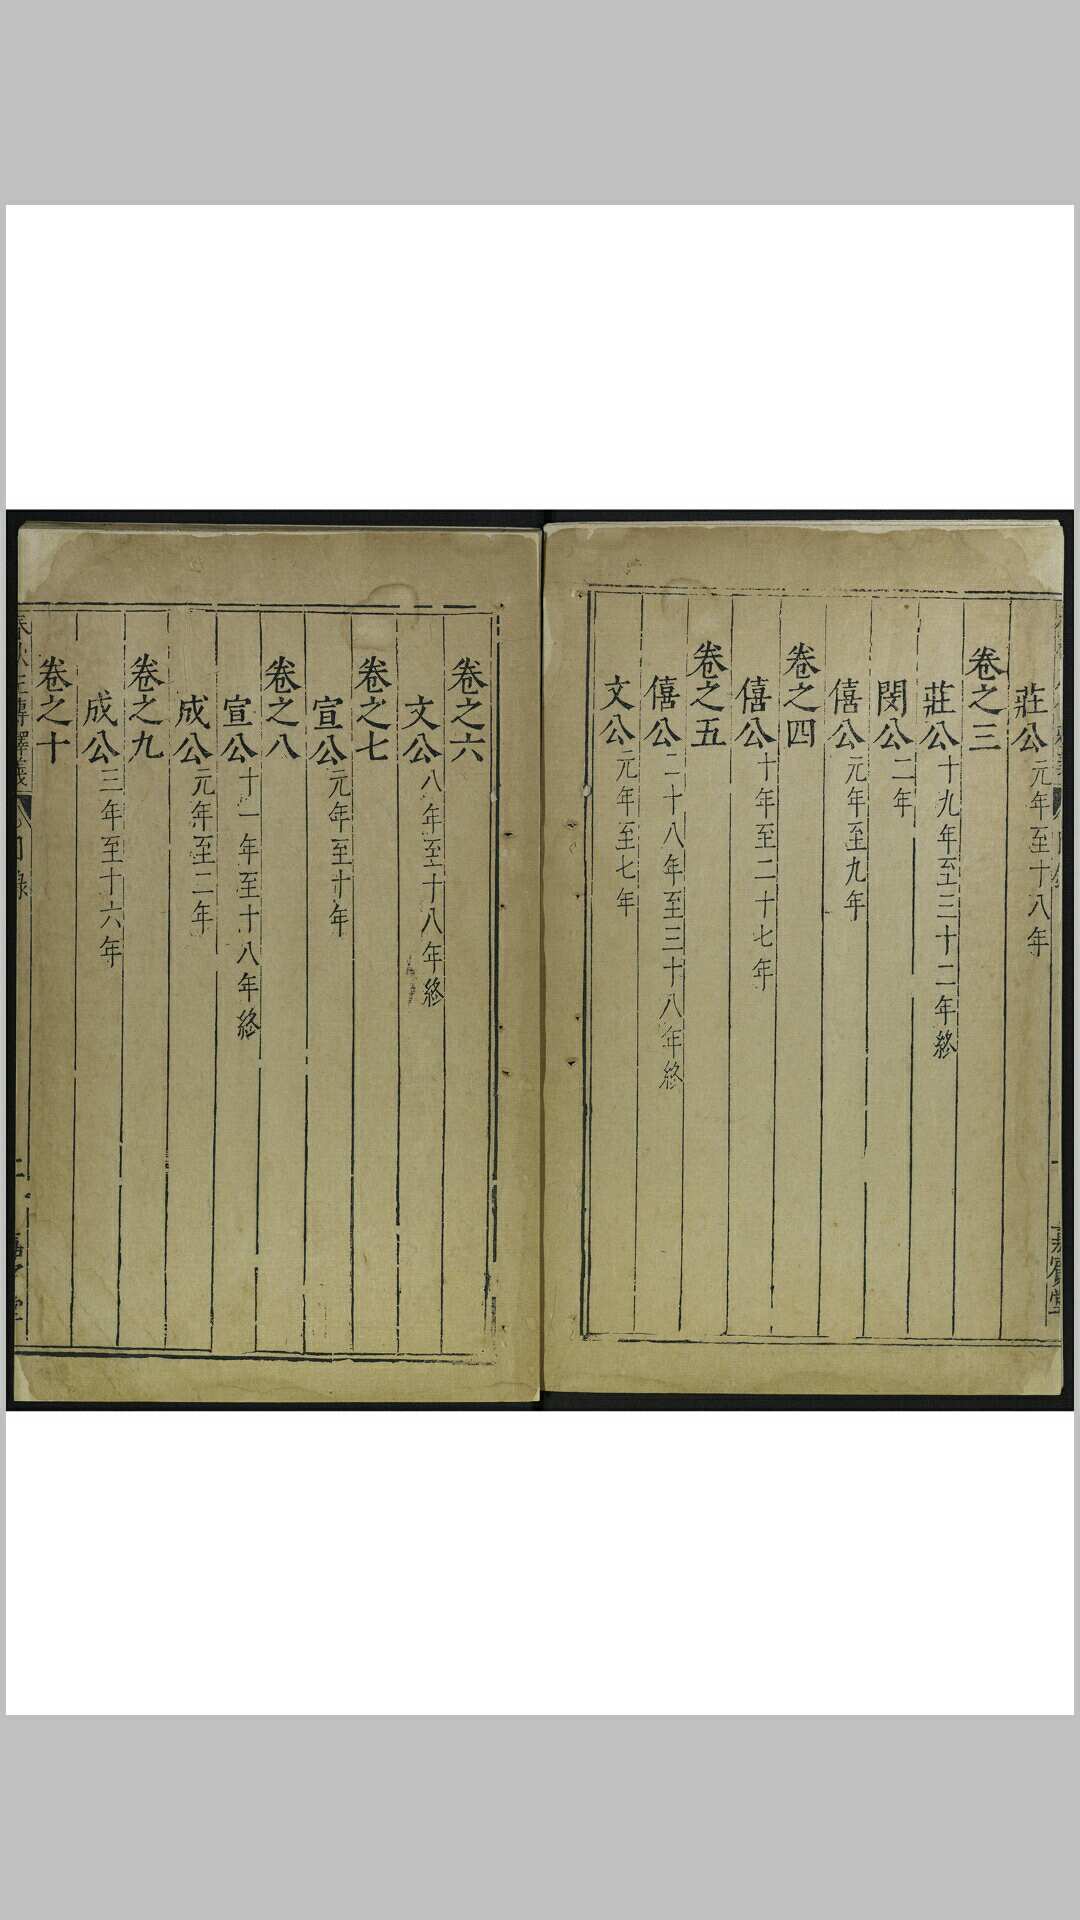 莊公元年至十八年
卷之三
莊公十九年至三十二年終
閔公二年
僖公元年至九年
卷之四
僖公十年至二十七年
卷之五
僖公二十八年至三十八年終
文公元年至七年
嘉賓堂
卷之六
文公八年至十八年終
卷之七
宣公元年至十年
卷之八
宣公十一年至十八年終
成公元年至二年
卷之九
成公三年至十六年
卷之十
目錄